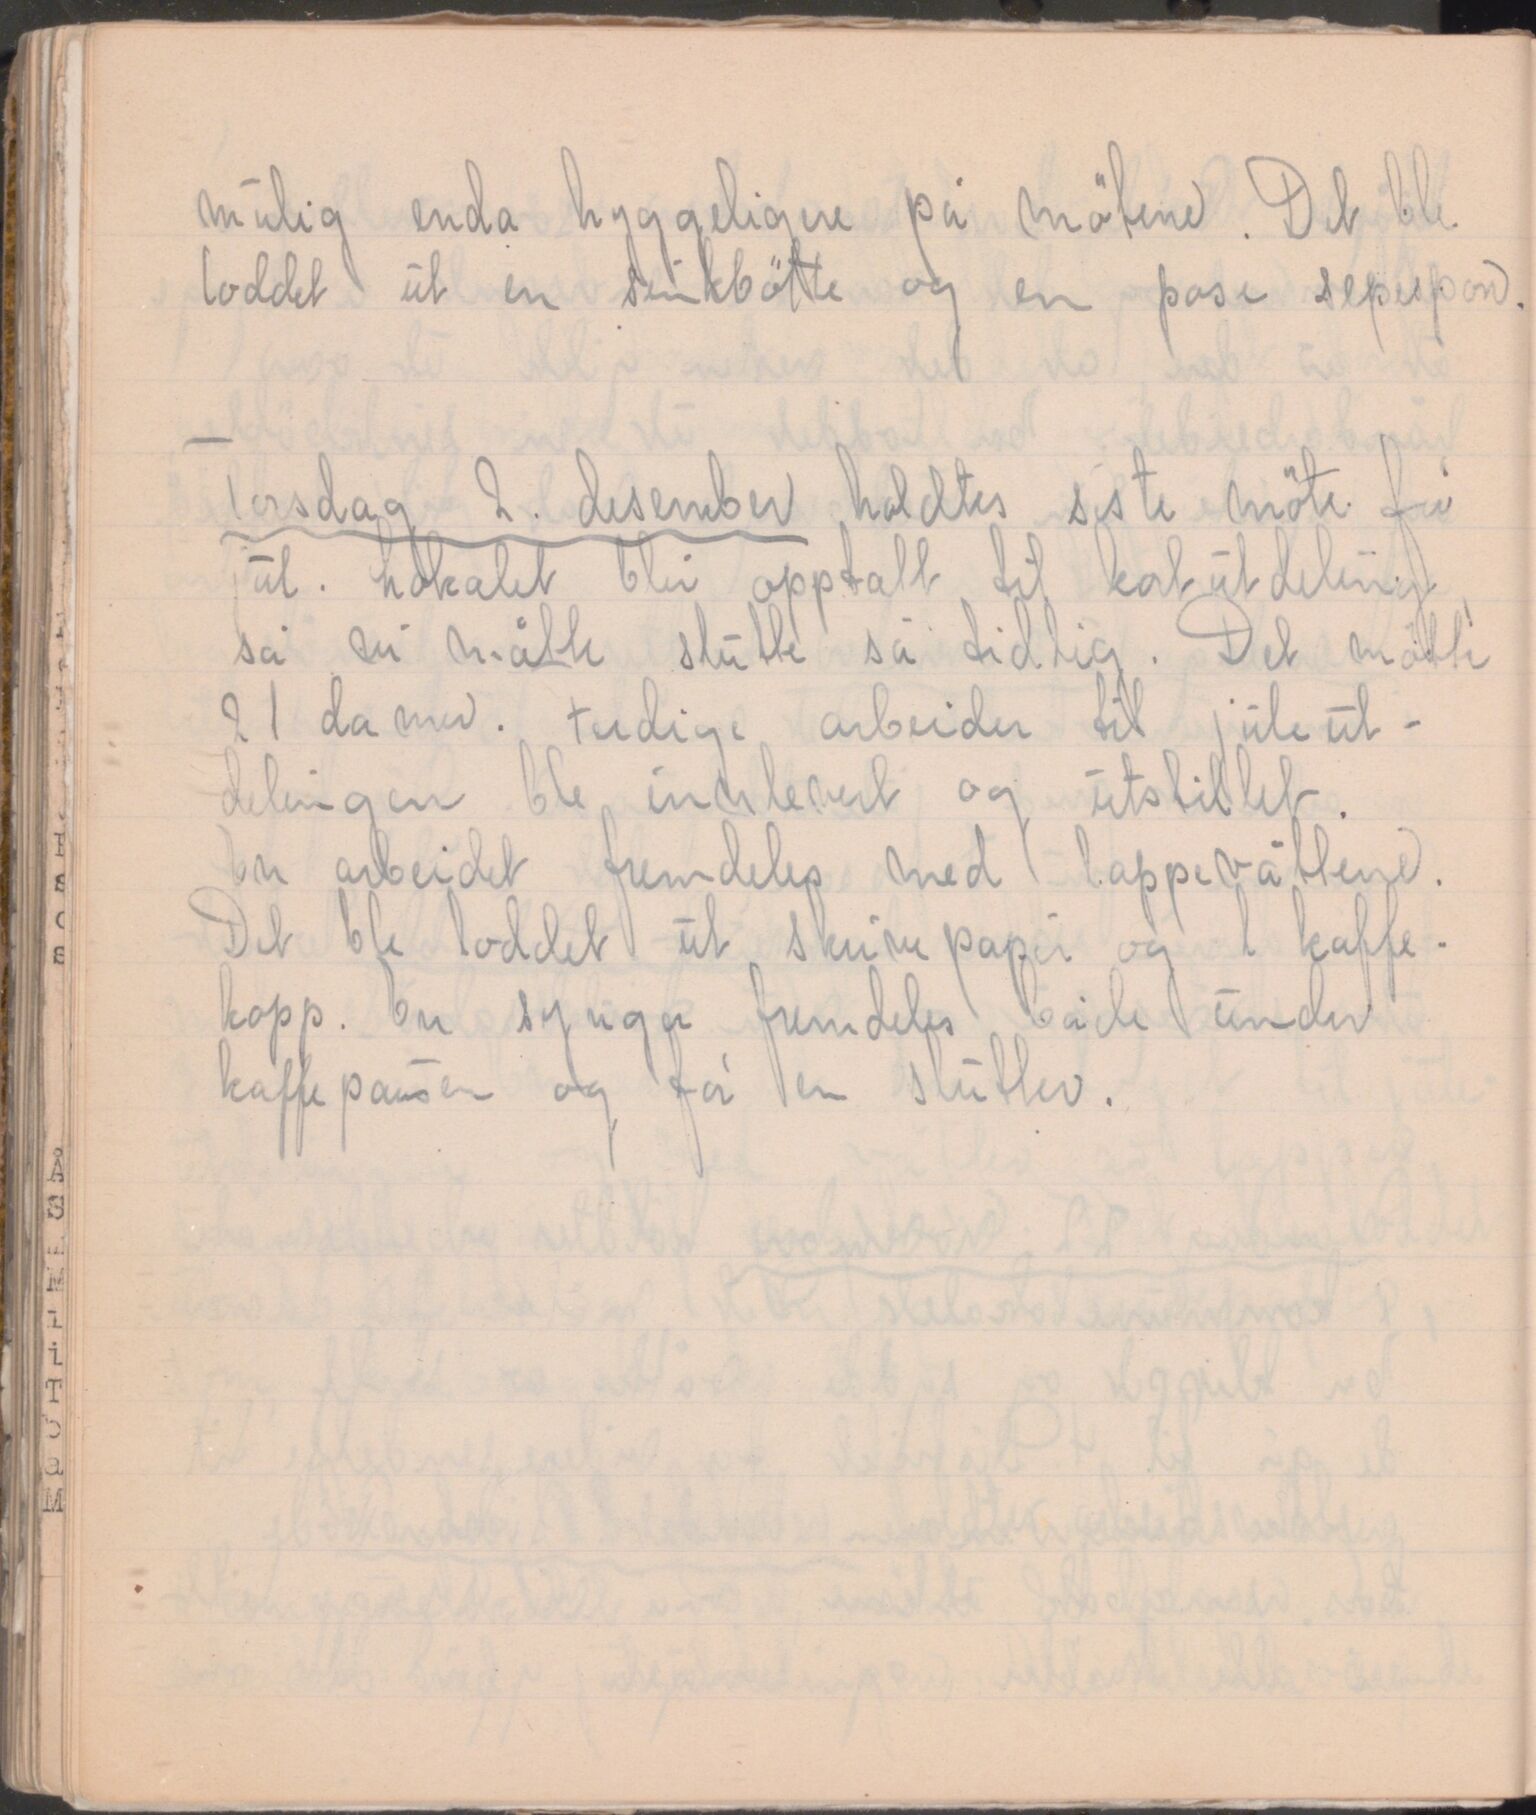 mulig enda hyggeligere på mötene. Det ble
loddet ut en sinkbötte og en pose sepespon.
Torsdag 2. desember holdtes siste möte för
jul. Lokalet blir opptatt til kortutdeling
så vi måtte slutte så tidlig. Det mötte
21 damer. Ferdige arbeider til juleut-
delingen ble innlevert og utstillet.
En arbeidet fremdeles med lappevåttene.
Det ble loddet ut skrivepapir og 1 kaffe-
kopp. En synger fremdeles både under
kaffepausen og för en slutter.